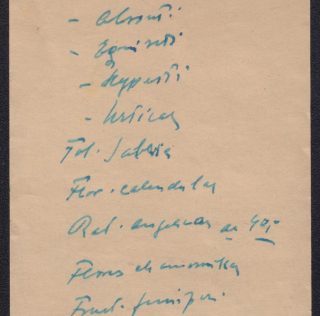 - Equiseti
- Hyperi
- Urticae
Fol. Salviae
Flor. calendulae
Rad. angelicae aa 40,-
Flores chamomillae
Fruct. juniperi